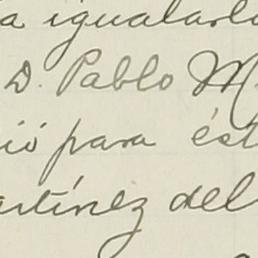 a igualarlo
D. Pablo M
ió para ést
artínez del